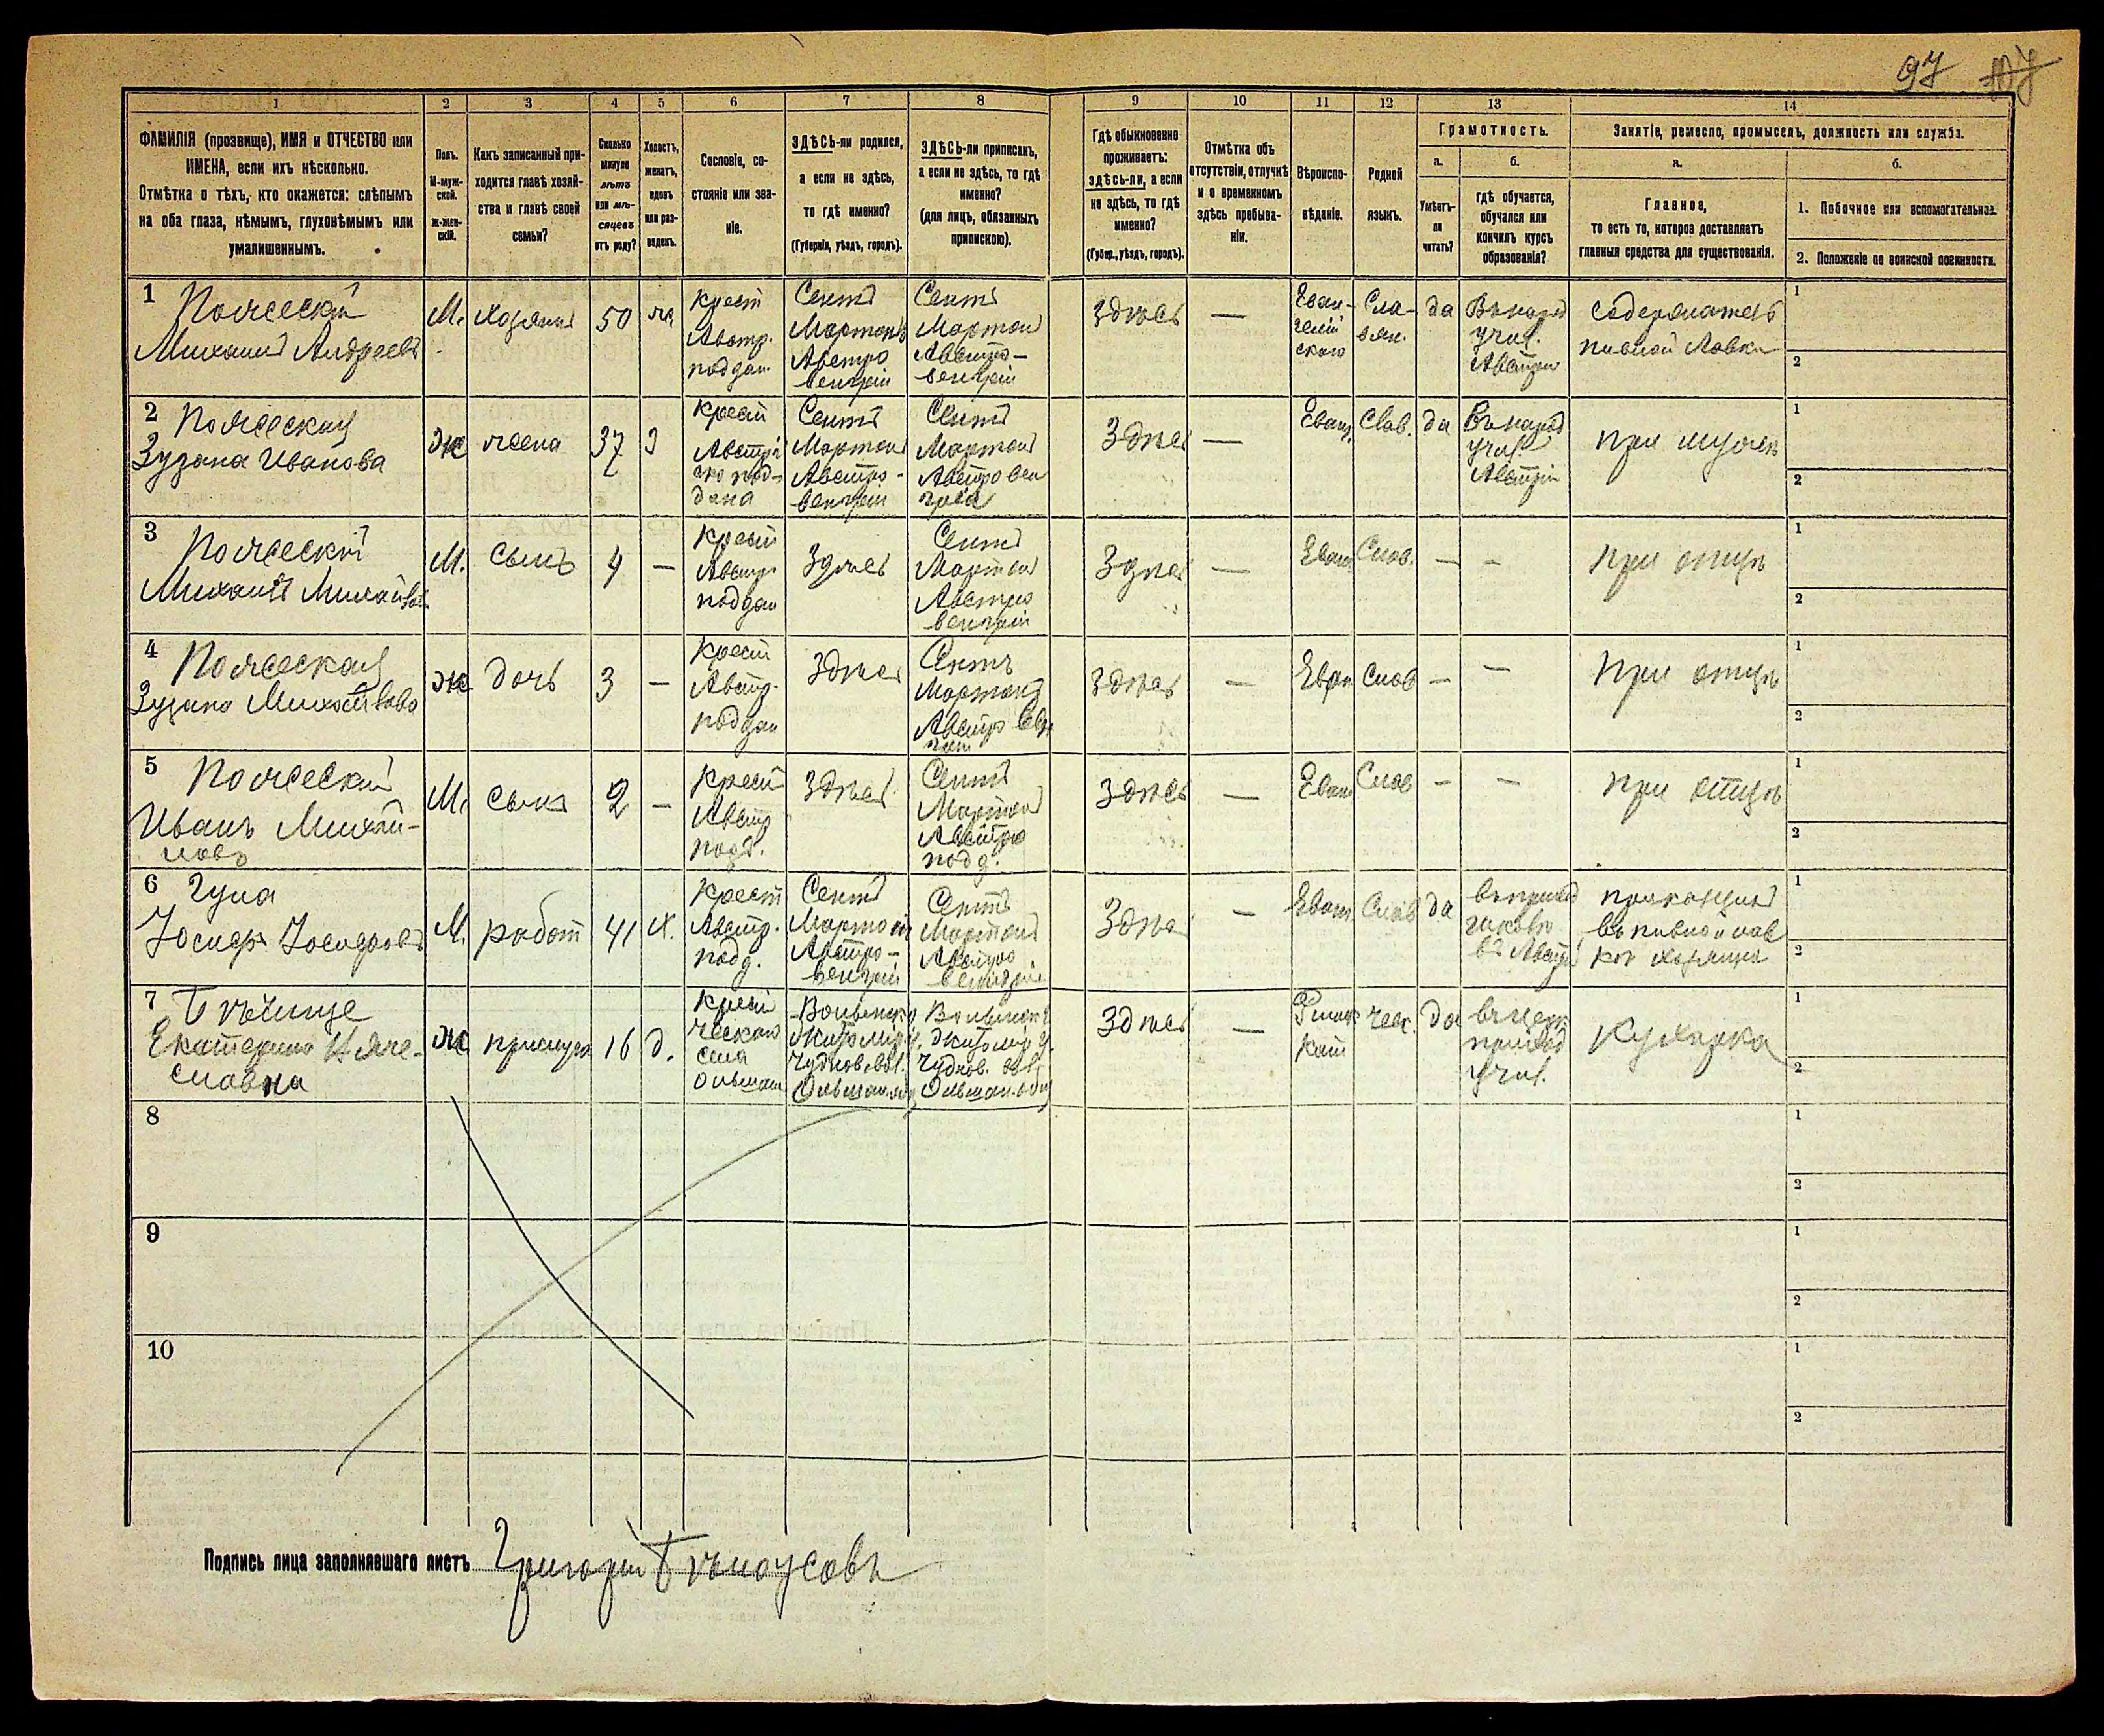 97
1
2
3
4
5
6
7
8
9
10
11
12
13
14
ФАМИЛІЯ (прозвище), ИМЯ и ОТЧЕСТВО или
ИМЕНА, если ихъ нѣсколько.
Отмѣтка о тѣхъ, кто окажется: слѣпымъ
на оба глаза, нѣмымъ, глухонѣмымъ или
умалишеннымъ.
Полъ.
М-муж-
ской.
ж-жен-
скій.
Какъ записанный при-
ходится главѣ хозяй-
ства и главѣ своей
семьи?
Сколько
минуло
лѣтъ
или мѣ-
сяцевъ
отъ роду?
Холостъ,
женатъ,
вдовъ
или раз-
веденъ.
Сословіе, со-
стояніе или зва-
ніе.
ЗДѢСЬ-ли родился,
а если не здѣсь,
то гдѣ именно?
(Губернія, уѣздъ, городъ).
ЗДѢСЬ-ли приписанъ,
а если не здѣсь, то гдѣ
именно?
(для лицъ, обязанныхъ
припискою).
Гдѣ обыкновенно
проживаетъ:
здѣсь-ли, а если
не здѣсь, то гдѣ
именно?
(Губер., уѣздъ, городъ).
Отмѣтка объ
отсутствіи, отлучкѣ
и о временномъ
здѣсь пребыва-
ніи.
Вѣроиспо-
вѣданіе.
Родной
языкъ.
Грамотность.
а.
б.
Умѣетъ-
ли
читать?
гдѣ обучается,
обучался или
кончилъ курсъ
образованія?
Занятіе, ремесло, промыселъ, должность или служба.
а.
б.
Главное,
то есть то, которое доставляетъ
главныя средства для существованія.
1. Побочное или вспомогательное.
2. Положеніе по воинской повинности.
1
Михаилъ Андреевъ
М.
хозяинъ
50
крест
Австр.
поддан
Сентъ
Мартонъ
Австро
венгріи
Сентъ
Мартонъ
Австро-
венгріи
Здѣсь
—
Еван-
гелій
ского
Сла-
вян.
да
Въ народ
учил.
Австріи
содержатель
пивной лавки
1
2
2
Зузана Иванова
ж
жена
37
З
крест
Австрій
ско под-
дана
Сентъ
Мартонъ
Австро-
венгріи
Сентъ
Мартонъ
Австро вен
гріи
Здѣсь
—
Еванг.
Слав.
да
Въ народ
учил
Австріи
при мужѣ
1
2
3
Михаилъ Михайлов
М.
сынъ
4
—
крест
Австр
поддан
Здѣсь
Сентъ
Мартонъ
Австро
венгріи
Здѣсь
—
Еванг
Слов.
—
—
при отцѣ
1
2
4
Зузана Михайлова
ж
дочь
3
—
крест
Австр.
поддан
Здѣсь
Сентъ
Мартонъ
Австро Вен
гріи
Здѣсь
—
Еван
Слов
—
—
при отцѣ
1
2
5
Иванъ Михай-
ловъ
М.
сынъ
2
—
крест
Австр
подд.
Здѣсь
Сентъ
Мартонъ
Австро
подд.
Здѣсь
—
Еванг
Слов
—
—
при отцѣ
1
2
6
Гула
Іосифъ Іосифовъ
М.
работ
41
х.
крест
Австр.
подд.
Сентъ
Мартонъ
Австро-
венгріи
Сентъ
Мартонъ
Австро
венгріи
Здѣсь
—
Еванг
Слов
да
въ Австріи
прикащикъ
въ пивной лав
кѣ хозяина
1
2
7
Екатерина Вяче-
славна
ж
прислуга
16
д.
крест
ческаго
села
Ольшан
Волынск г
Житомір у.
Чуднов. вол.
Волынск г
Житомір у.
Чуднов. вол.
Здѣсь
—
Римск
кат
чеш.
да
учил.
Кухарка
1
2
8
1
2
9
1
2
10
1
2
Подпись лица заполнявшаго листъ Григорій Бѣлоусовъ